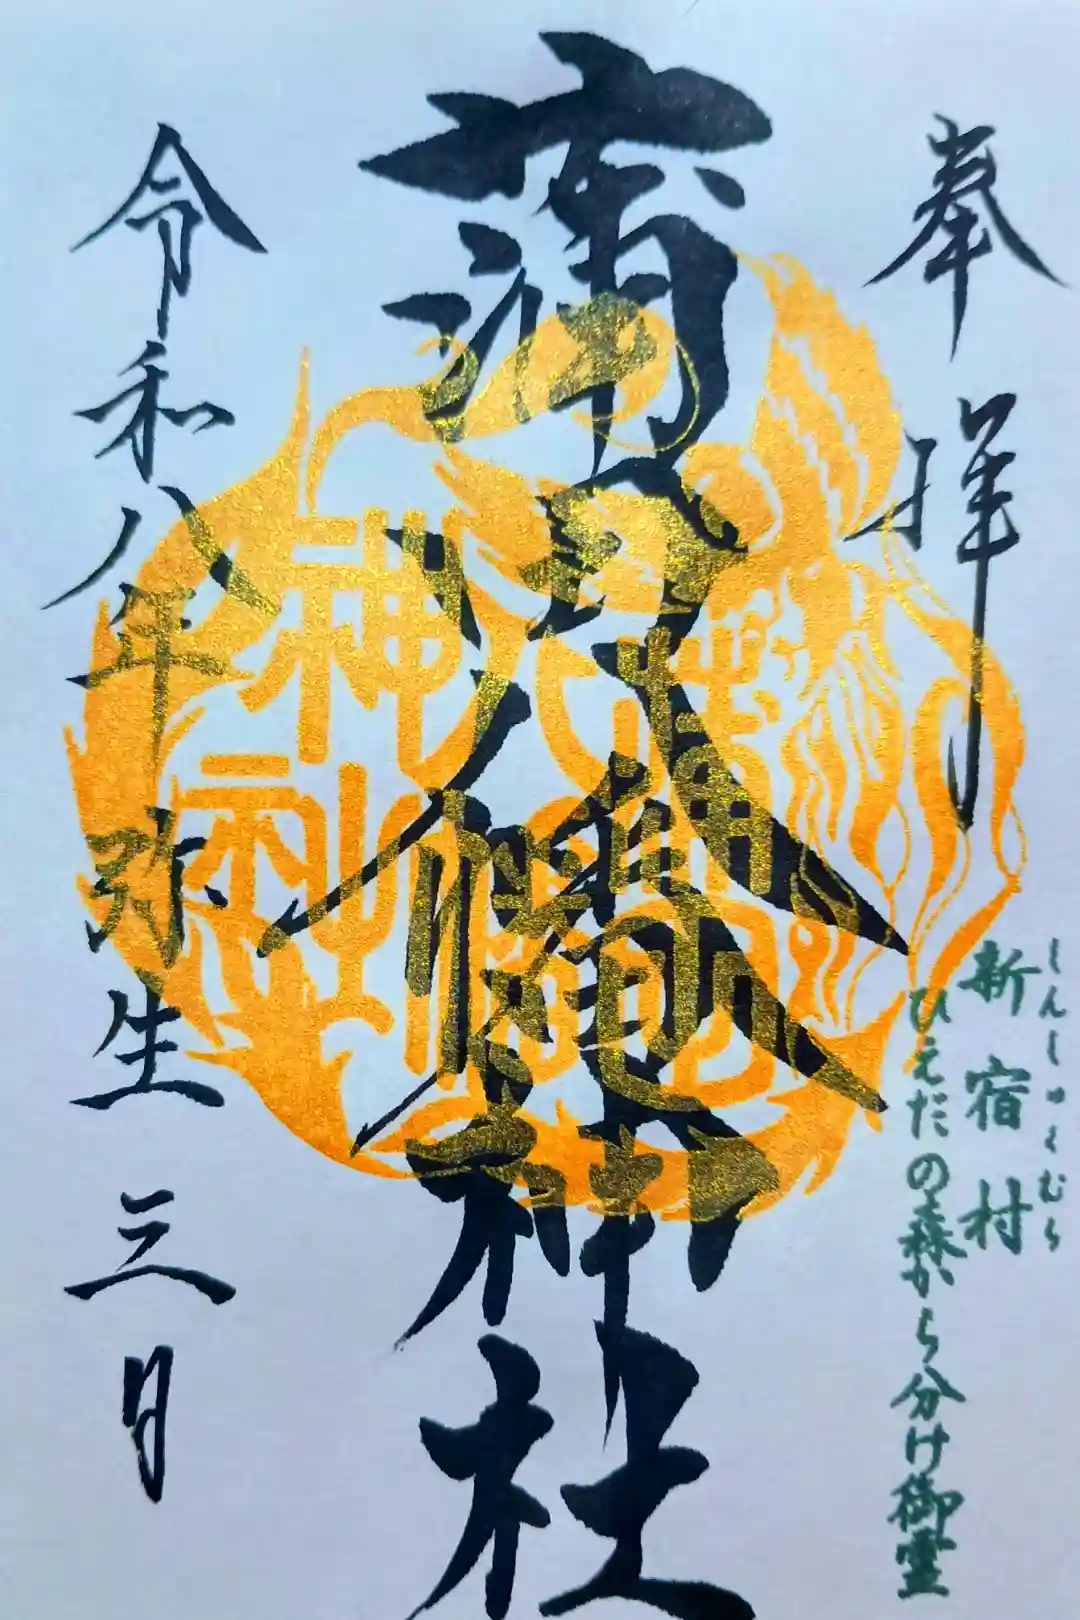 奉拝
しんしゅくむら
新宿村
ひえだの森から分け御霊
蒲田八幡神社
蒲田
八幡
神社
令和八年弥生三日